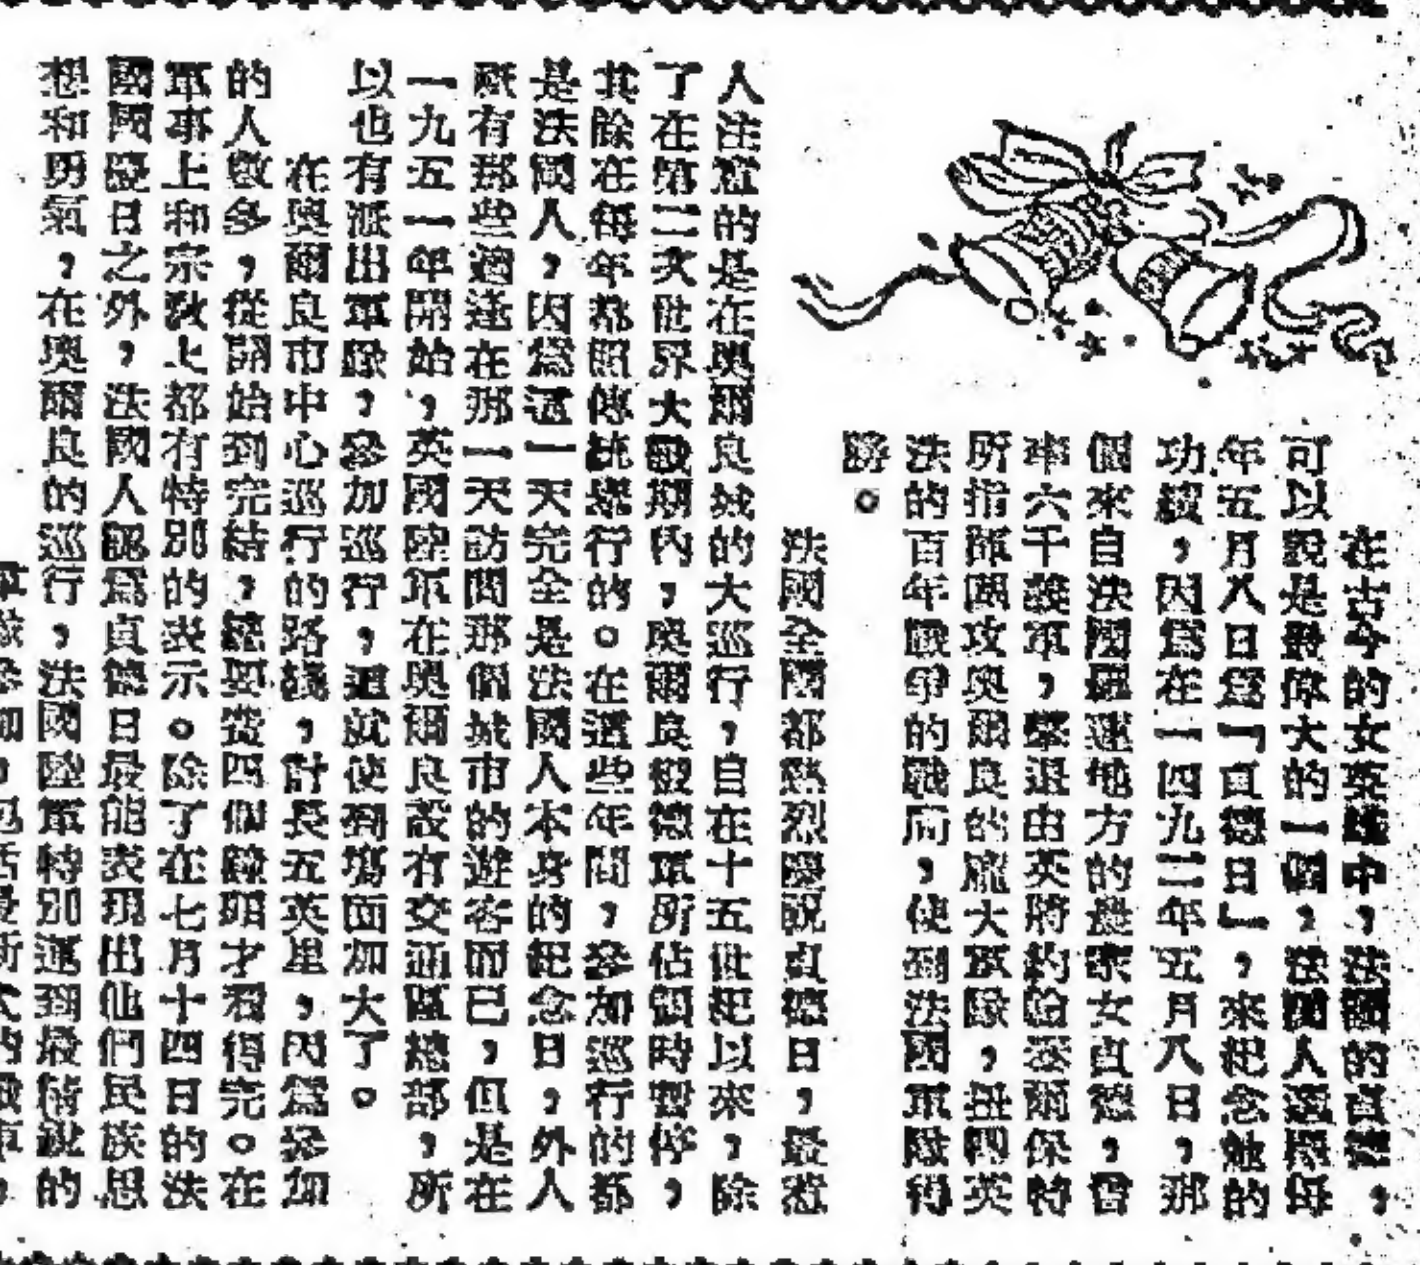 在古今的女英雄中，法國的貞德，
可以說是最偉大的一個，法國人選擇每
年五月八日爲「貞德日」，來紀念她的
功績，因爲在一四九二年五月八日，那
個來自法國羅連地方的農家女貞德，曾
率六千義軍，擊退由英將約翰泰爾保特
所指揮圍攻奥爾良的龐大軍隊，扭轉英
法的百年戰爭的戰局，使到法國軍隊得
勝。
法國全國都熱烈慶祝貞德日，最惹
人注意的是在奥爾良城的大巡行，自在十五世紀以來，除
了在第二次世界大戰期內，奥爾良被德軍所佔領時暫停，
其餘在每年都照傳統舉行的。在這些年間，參加巡行的都
是法國人，因爲這一天完全是法國人本身的紀念日，外人
祇有那些適逢在那一天訪問那個城市的遊客而已，但是在
一九五一年開始，英國陸軍在奥爾良設有交通區總部，所
以也有派出軍隊，參加巡行，這就使到塲面加大了。
在奥爾良市中心巡行的路綫，計長五英里，因爲參加
的人數多，從開始到完結，總要費四個鐘頭才看得完。在
軍事上和宗教上都有特別的表示。除了在七月十四日的法
國國慶日之外，法國人認爲貞德日最能表現出他們民族思
想和勇氣，在奥爾良的巡行，法國陸軍特別運到最精銳的